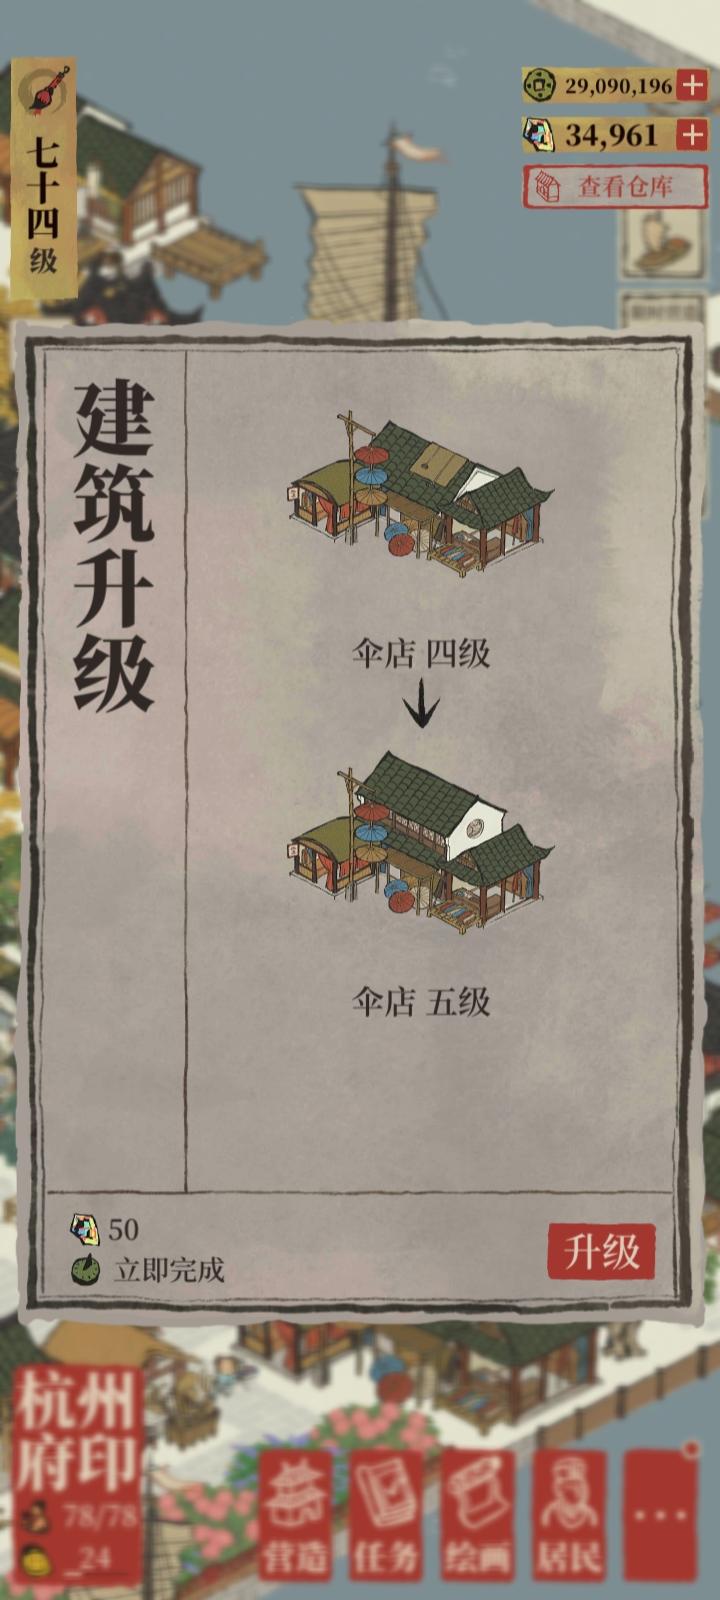 七十四级
29,090,196
34,961
查看仓库
建筑升级
伞店 四级
伞店 五级
50
立即完成
升级
杭州
府印
78/78
24
营造
任务
绘画
居民